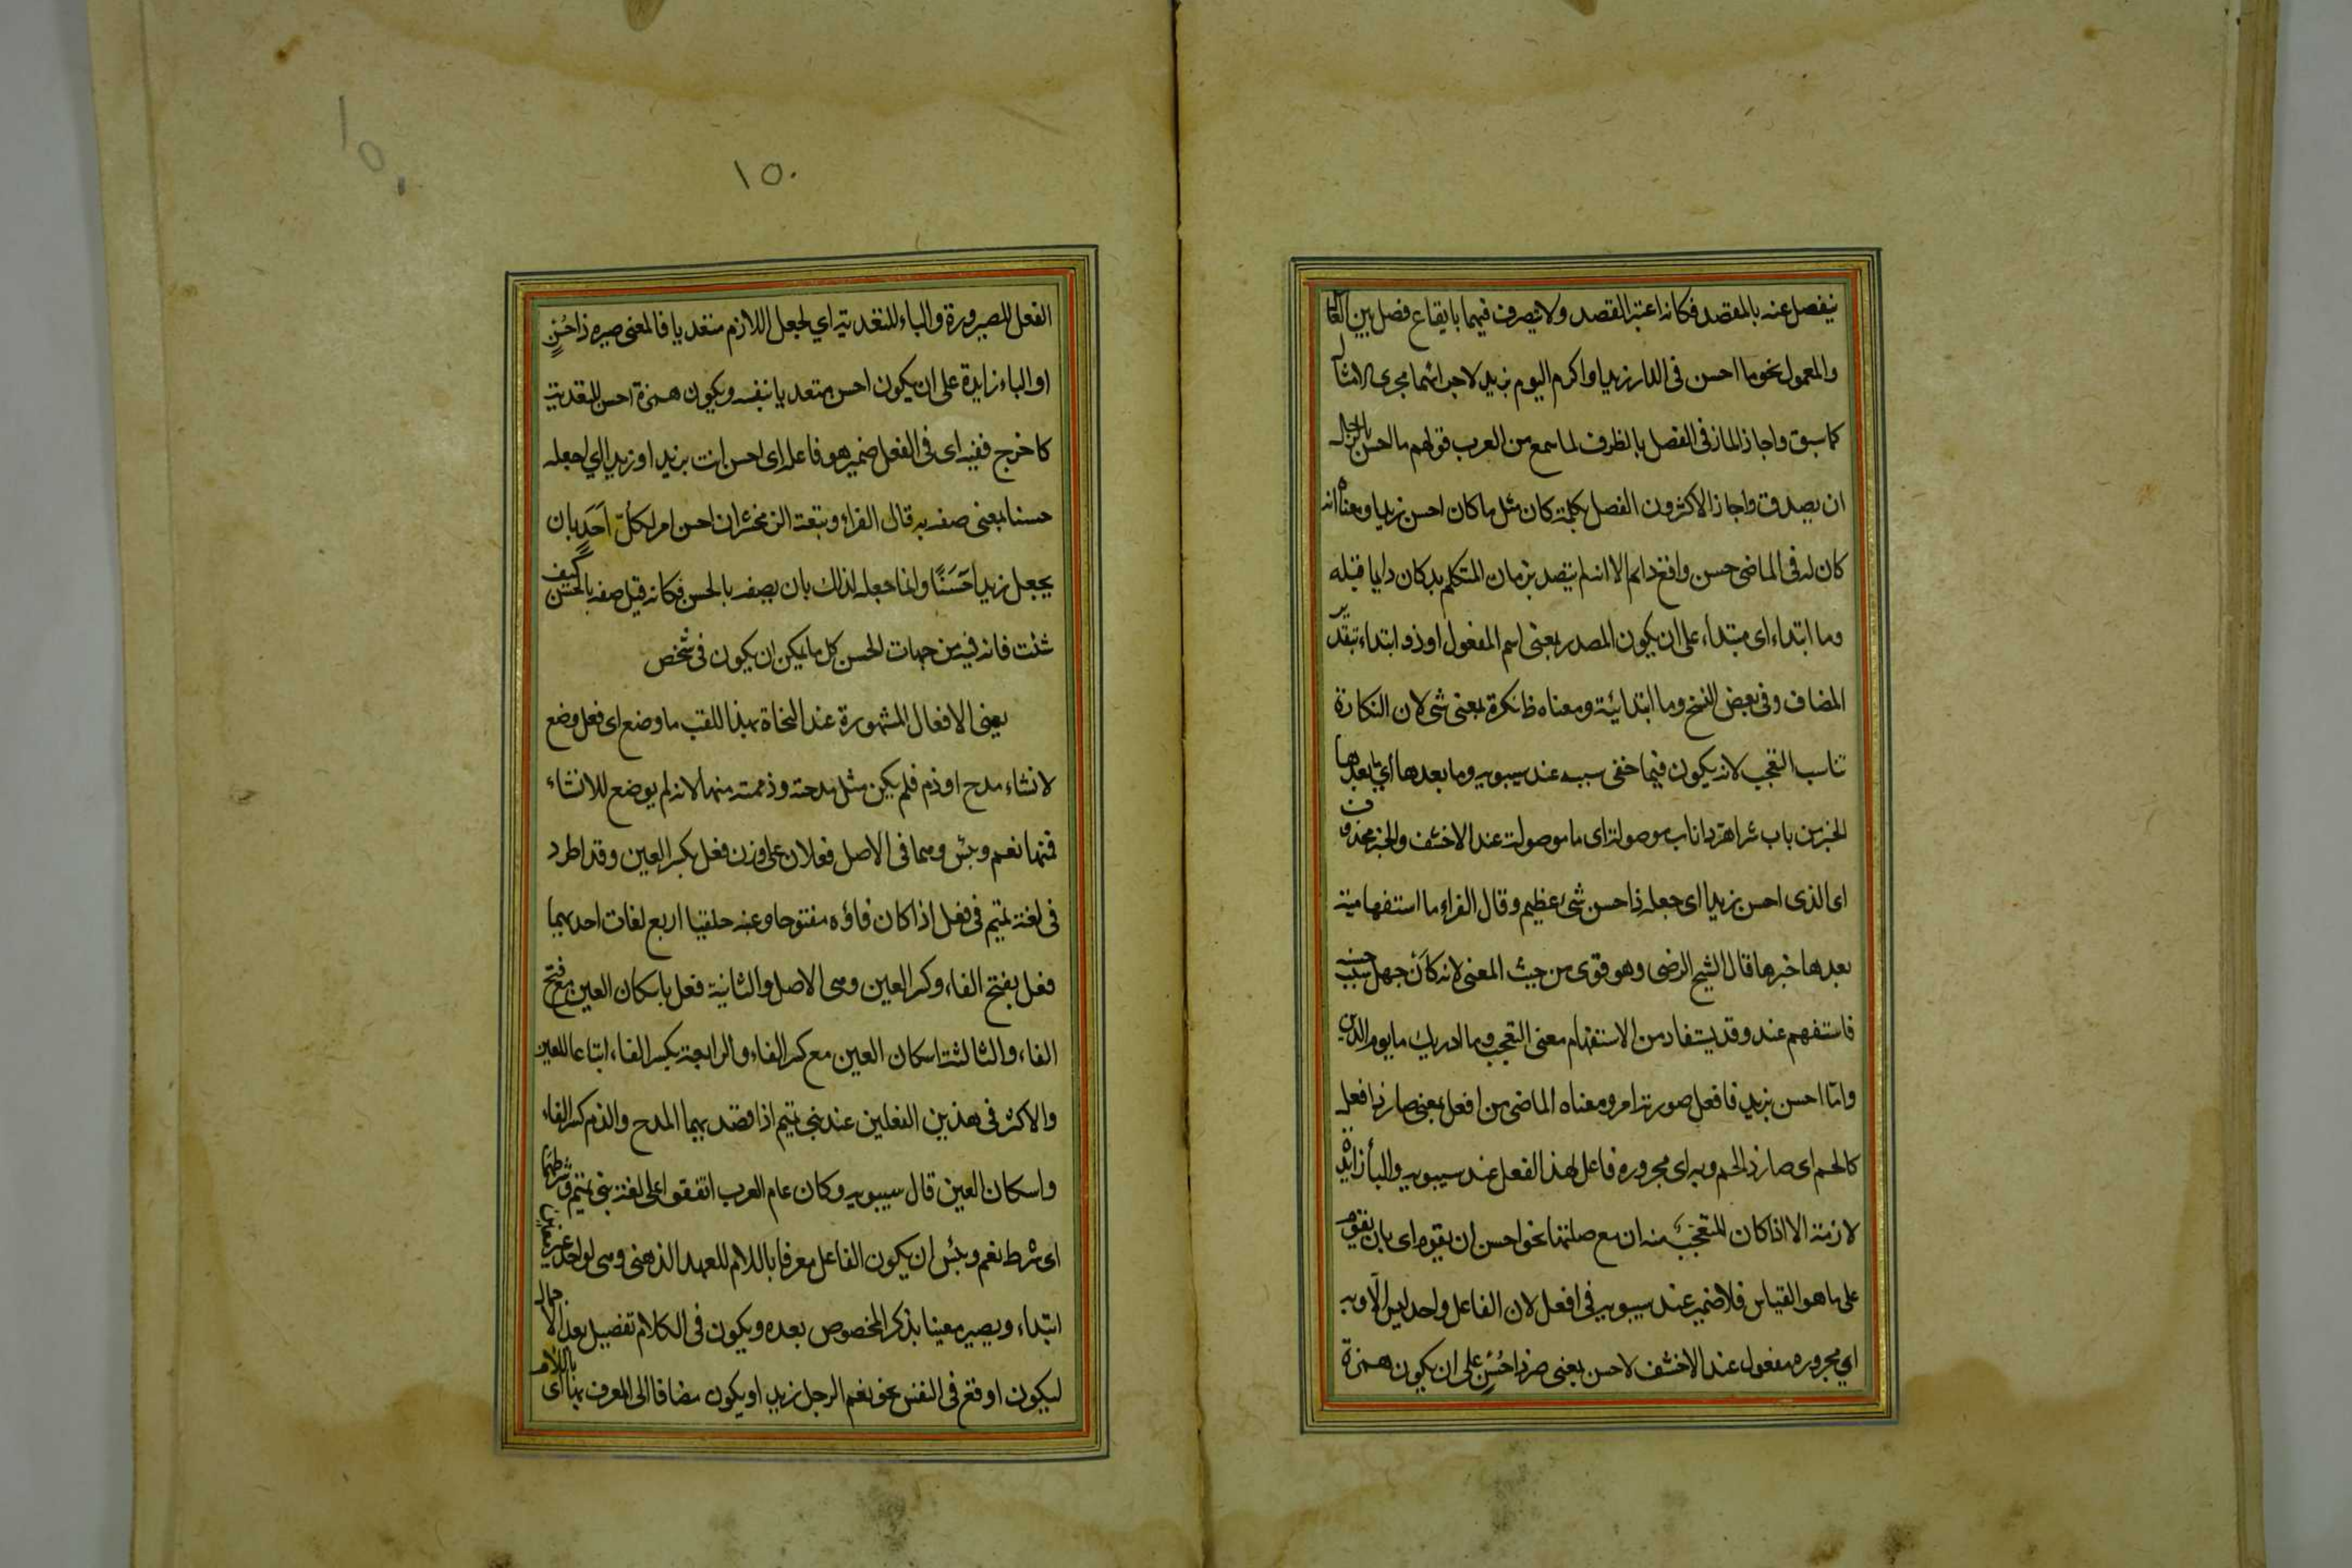 ينفصل عنه بالمقصد فكانه اعتبر القصد ولا يصرف فيهما بايقاع فصل بين العا
والمعمول نحو ما احسن في الدار زيدا او اكرم اليوم بزيد لاجرائهما مجرى الامثال
كما سبق واجاز المازنى الفصل بالظرف لما سمع من العرب قولهم ما احسن بالرجل
ان يصدق واجاز الاكثرون الفصل بكلمة كان مثل ما كان احسن زيدا ومعناه انه
كان له فى الماضى حسن واقع دائم الا انه لم يتصل بزمان المتكلم بل كان دايما قبله
وما ابتداء اى مبتداء على ان يكون المصدر بمعنى اسم المفعول او ذو ابتداء بتقدير
المضاف وفى بعض النسخ وما ابتدائية ومعناه ظ نكرة بمعنى شى لان النكارة
تناسب التعجب لانه يكون فيما خفى سببه عند سيبويه وما بعدها اي ما بعدها
الخبر من باب شر اهر ذا ناب موصولة اى ما موصولة عند الاخفش والخبر محذوف
اى الذى احسن زيدا اى جعله ذا حسن شئ عظيم وقال الفراء ما استفهامية
بعدها خبرها قال الشيخ الرضى وهو قوى من حيث المعنى لانه كان جهل سبب حسنه
فاستفهم عنه وقد يستفاد من الاستفهام معنى التعجب وما ادريك ما يوم الدين
وامّا احسن بزيد فافعل صورته امر ومعناه الماضى من افعل بمعنى صار ذا فعل
كالحم اى صار ذا لحم وبه اى مجروره فاعل لهذا الفعل عند سيبويه والباء زايدة
لازمة الا اذا كان المتعجَّب منه ان مع صلتها نحو احسن ان يقوم اى بان يقوم
على ما هو القياس فلا ضمير عند سيبويه فى افعل لان الفاعل واحد ليس الّا وبه
اي مجروره مفعول عند الاخفش لاحسن بمعنى صر ذا حُسْنٍ على ان يكون همزة
١٥٠
١٥٠
الفعل للصيرورة والباء للتعدية اي لجعل اللازم متعديا فالمعنى صيره ذا حُسْنٍ
او الباء زايدة على ان يكون احسن متعديا بنفسه ويكون همزة احسن للتعدية
كاخرج ففيه اى فى الفعل ضمير هو فاعله اى احسن انت بزيد او زيدا اي اجعله
حسنا بمعنى صفه به قال الفراء وتبعه الزمخشرى ان احسن امر لكلّ اَحَدٍ بان
يجعل زيدا حَسَنًا وانما جعله لذلك بان يصفه بالحسن فكانه قيل صفه بالحسن كيف
شئت فان فيه من جهات الحسن كل ما يمكن ان يكون فى شخص
يعنى الافعال المشهورة عند النحاة بهذا اللقب ما وضع اى فعل وضع
لانشاء مدح او ذم فلم يكن مثل مدحته وذممته منها لانه لم يوضع للانشاء
فمنها نعم وبئس وهما فى الاصل فعلان على وزن فعل بكسر العين وقد اطرد
فى لغة تميم فى فعل اذا كان فاؤه مفتوحا وعينه حلقيا اربع لغات احديهما
فعل بفتح الفاء وكسر العين وهى الاصل والثانية فعل باسكان العين مع فتح
الفاء والثالثة اسكان العين مع كسر الفاء والرابعة بكسر الفاء اتباعا للعين
والاكثر فى هذين الفعلين عند بنى تميم اذا قصد بهما المدح والذم كسر الفاء
واسكان العين قال سيبويه وكان عام العرب اتفقوا على لغة بنى تميم وشرطهما
اى شرط نعم وبئس ان يكون الفاعل معرفا باللام للعهد الذهنى وهى لواحد غير معين
ابتداء ويصير معينا بذكر المخصوص بعده ويكون فى الكلام تفصيل بعد الاجمال
ليكون اوقع فى النفس نحو نعم الرجل زيد او يكون مضافا الى المعرف بها اى باللام